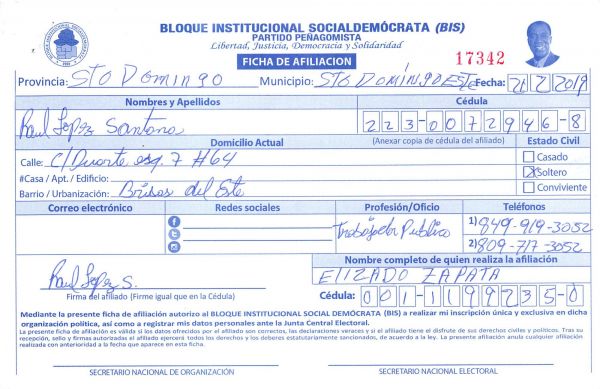 BLOQUE INSTITUCIONAL SOCIALDEMÓCRATA (BIS)
PARTIDO PEÑAGOMISTA
Libertad, Justicia, Democracia y Solidaridad
FICHA DE AFILIACION
17342
Provincia: STO DOMINGO Municipio: STO DOMINGO ESTE Fecha: 21/2/2019
Nombres y Apellidos Cédula
Raul Lopez Santana 223-0072946-8
Domicilio Actual (Anexar copia de cédula del afiliado) Estado Civil
Calle: C/Duarte esq. 7 #64 Casado
#Casa / Apt. / Edificio: Soltero
Barrio / Urbanización: Brisas del Este Conviviente
Correo electrónico Redes sociales Profesión/Oficio Teléfonos
Trabajador Publico 1) 849-919-3052
2) 809-717-3052
Nombre completo de quien realiza la afiliación
Raul Lopez S. ELIZADO ZAPATA
Firma del afiliado (Firme igual que en la Cédula) Cédula: 001-1199235-0
Mediante la presente ficha de afiliación autorizo al BLOQUE INSTITUCIONAL SOCIAL DEMÓCRATA (BIS) a realizar mi inscripción única y exclusiva en dicha
organización política, así como a registrar mis datos personales ante la Junta Central Electoral.
La presente ficha de afiliación es válida si los datos ofrecidos por el afiliado son correctos, las declaraciones veraces y si el afiliado tiene el disfrute de sus derechos civiles y políticos. Tras su
recepción, sello y firmas autorizadas el afiliado ejercerá todos los derechos y los deberes estatutariamente sancionados, de acuerdo a la ley. La presente afiliación anula cualquier afiliación
realizada con anterioridad a la fecha que aparece en esta ficha.
SECRETARIO NACIONAL DE ORGANIZACIÓN SECRETARIO NACIONAL ELECTORAL